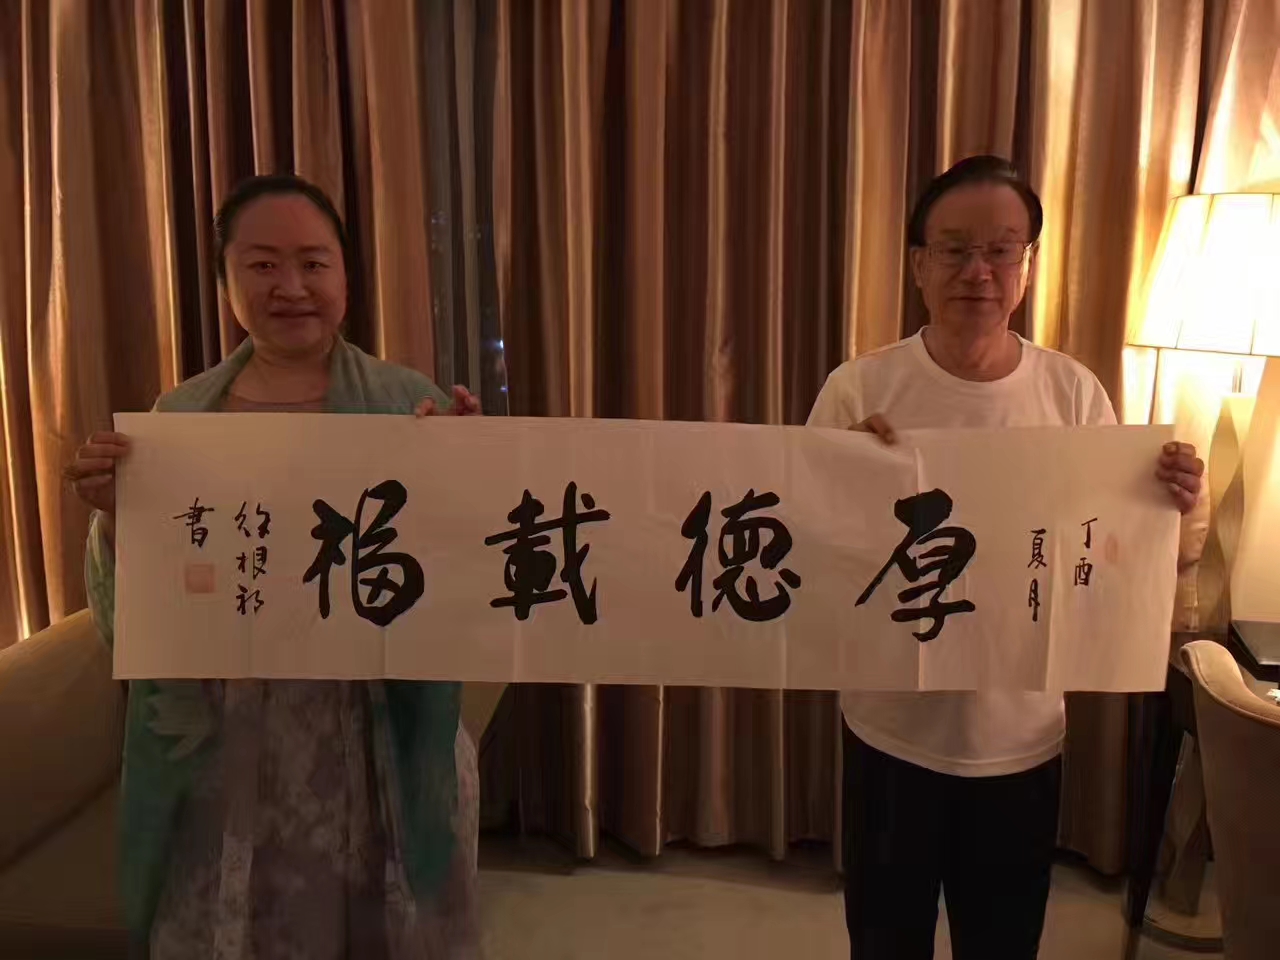 丁酉
夏月
厚德載福
徐根初
書